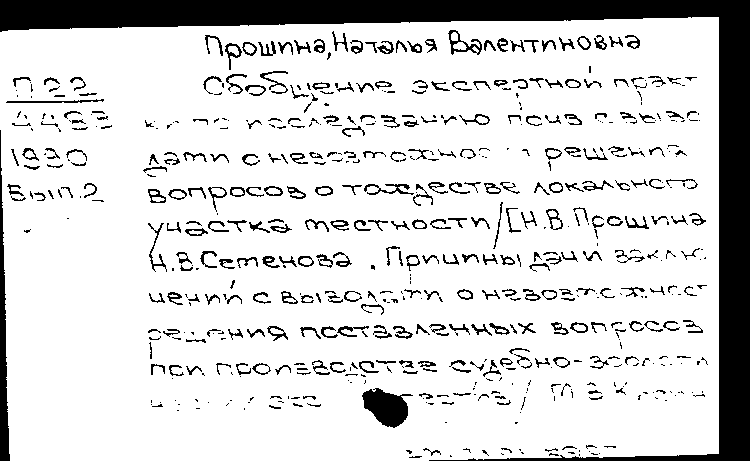 Прошина, Наталья Валентиновна
П22 Обобщение экспертной практ
4483 ки по исследованию почв с выво
1990 дами о невозможнос и решения
вып.2 вопросов о тождестве локального
участка местности / [Н.В. Прошина
Н.В. Семенова. Причины дачи заклю
чений с выводами о невозможност
решения поставленных вопросов
при производстве судебно-